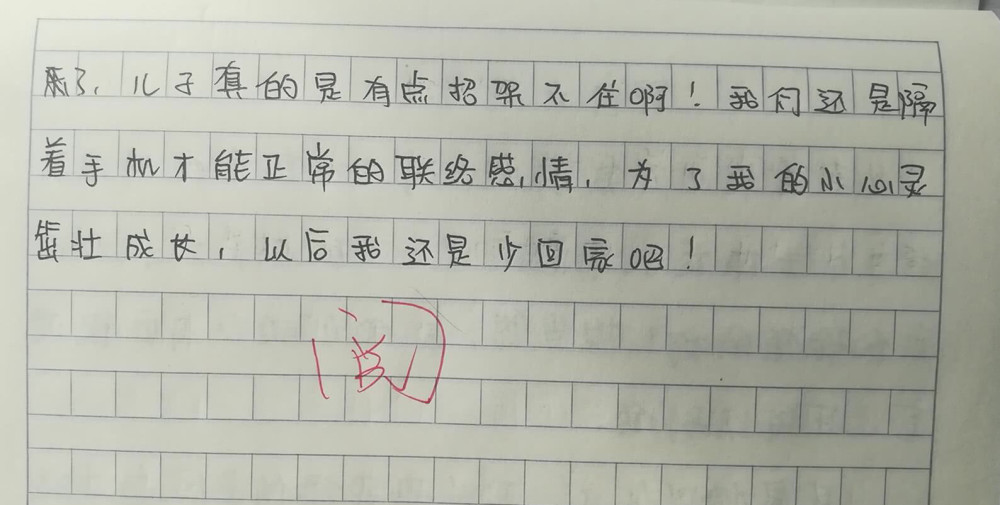 来了，儿子真的是有点招架不住啊！我们还是隔
着手机才能正常的联络感情，为了我的小心灵
茁壮成长，以后我还是少回家吧！
阅